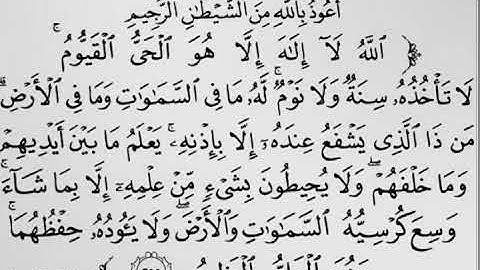 أَعُوذُ بِاللَّهِ مِنَ الشَّيْطَانِ الرَّجِيمِ
ٱللَّهُ لَآ إِلَٰهَ إِلَّا هُوَ ٱلْحَىُّ ٱلْقَيُّومُ ۚ
لَا تَأْخُذُهُۥ سِنَةٌ وَلَا نَوْمٌ ۚ لَّهُۥ مَا فِى ٱلسَّمَٰوَٰتِ وَمَا فِى ٱلْأَرْضِ ۗ
مَن ذَا ٱلَّذِى يَشْفَعُ عِندَهُۥٓ إِلَّا بِإِذْنِهِۦ ۚ يَعْلَمُ مَا بَيْنَ أَيْدِيهِمْ
وَمَا خَلْفَهُمْ ۖ وَلَا يُحِيطُونَ بِشَىْءٍ مِّنْ عِلْمِهِۦٓ إِلَّا بِمَا شَآءَ ۚ
وَسِعَ كُرْسِيُّهُ ٱلسَّمَٰوَٰتِ وَٱلْأَرْضَ ۖ وَلَا يَـُٔودُهُۥ حِفْظُهُمَا ۚ